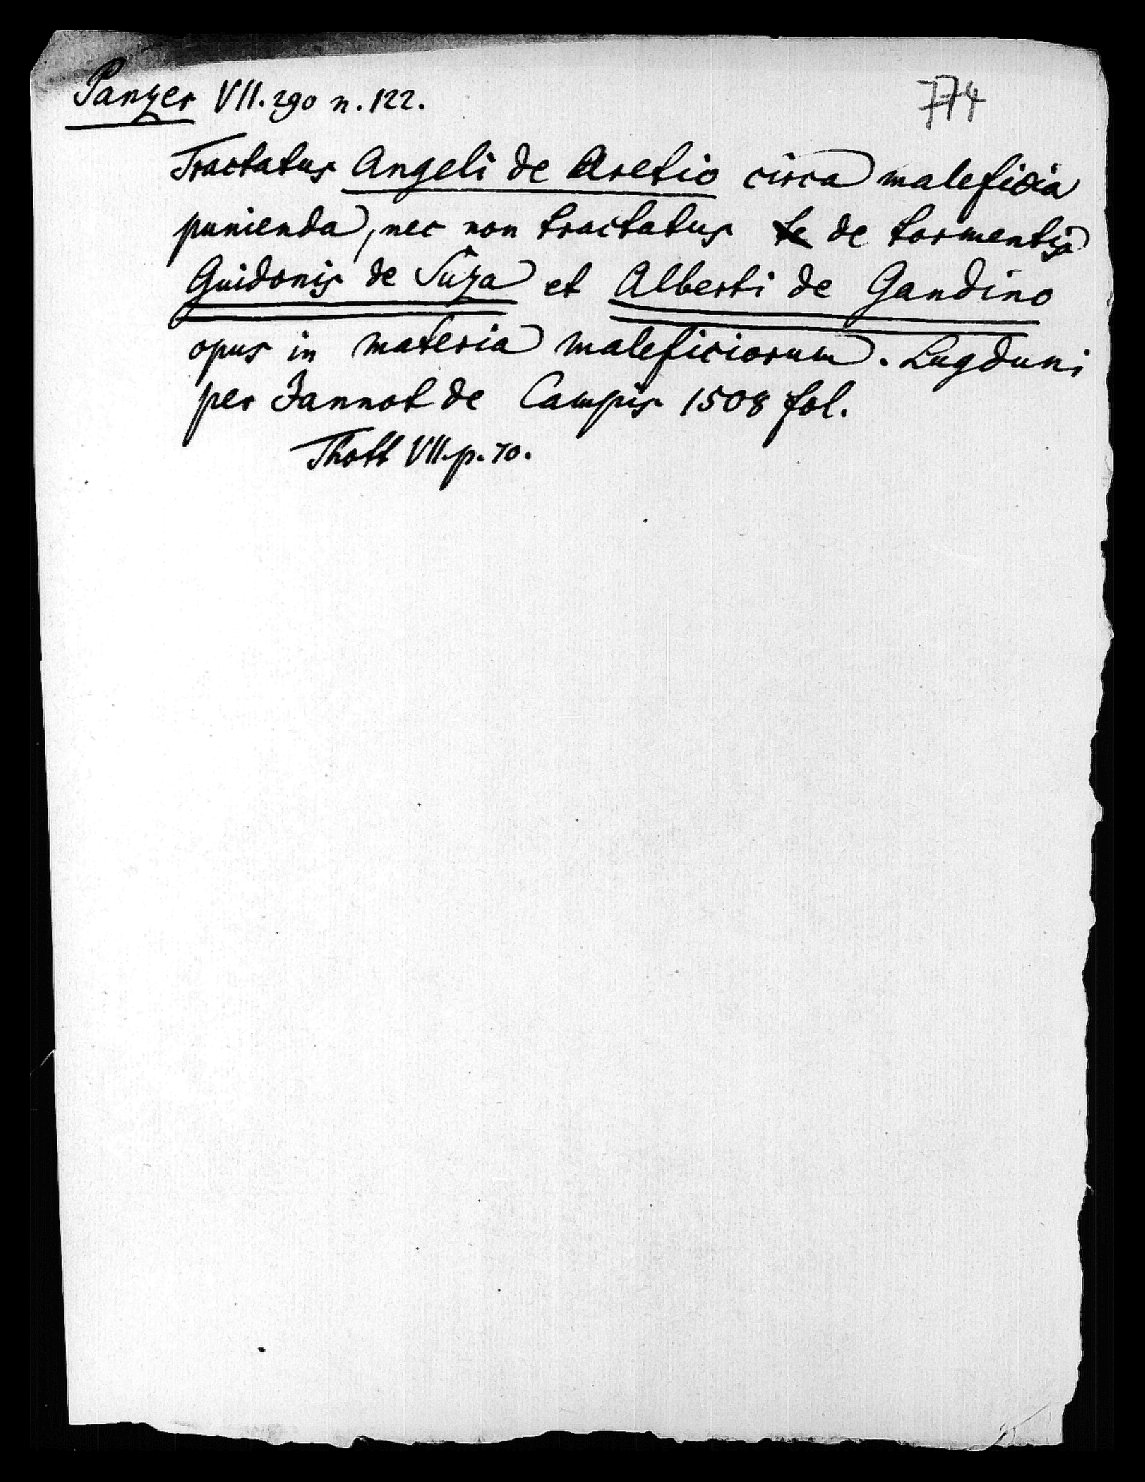 Panzer VII. 290 n. 122.
774
Tractatus Angeli de Aretio circa maleficia
punienda, nec non tractatus te de tormentis
Guidonis de Suza et Alberti de Gandino
opus in materia maleficiorum. Lugduni
per Jannot de Campis 1508 fol.
Thott VII. p. 70.